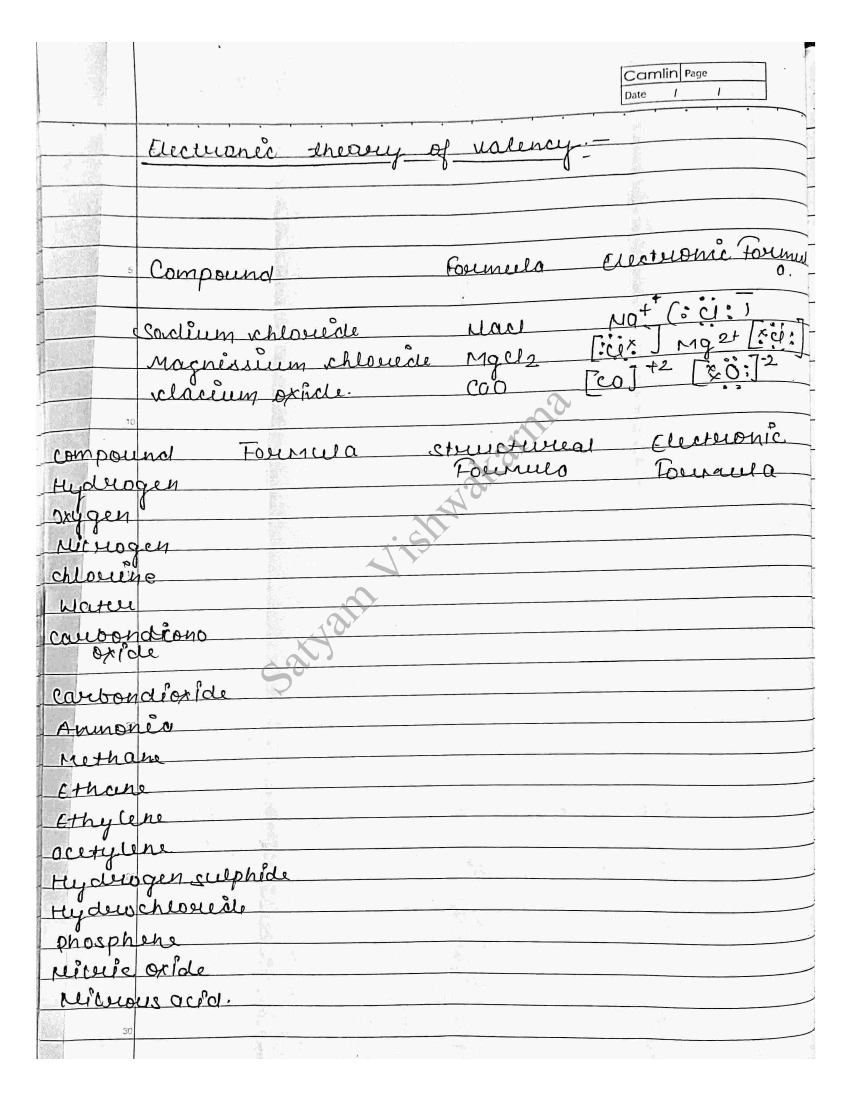 Camlin Page
Date / /
Electronic theory of valency:-
Compound Formula Electronic Formula.
Sodium chloride Nacl Na++ (:Cl:)-
Magnissium chloride MgCl2 [:Cl×] Mg2+ [×Cl:]
clacium oxide. CaO [ca]+2 [×O:]-2
compound Formula structureal Electronic
Formula Formula
Hydrogen
oxygen
Nitrogen
chlorine
Water
Carbondiono
oxide
Carbondioxide
Ammonia
Methane
Ethane
Ethylene
acetylene
Hydrogen sulphide
Hydrochloride
phosphene
Nitric oxide
Nitrous acid.
Satyam Vishwakarma
5
10
30